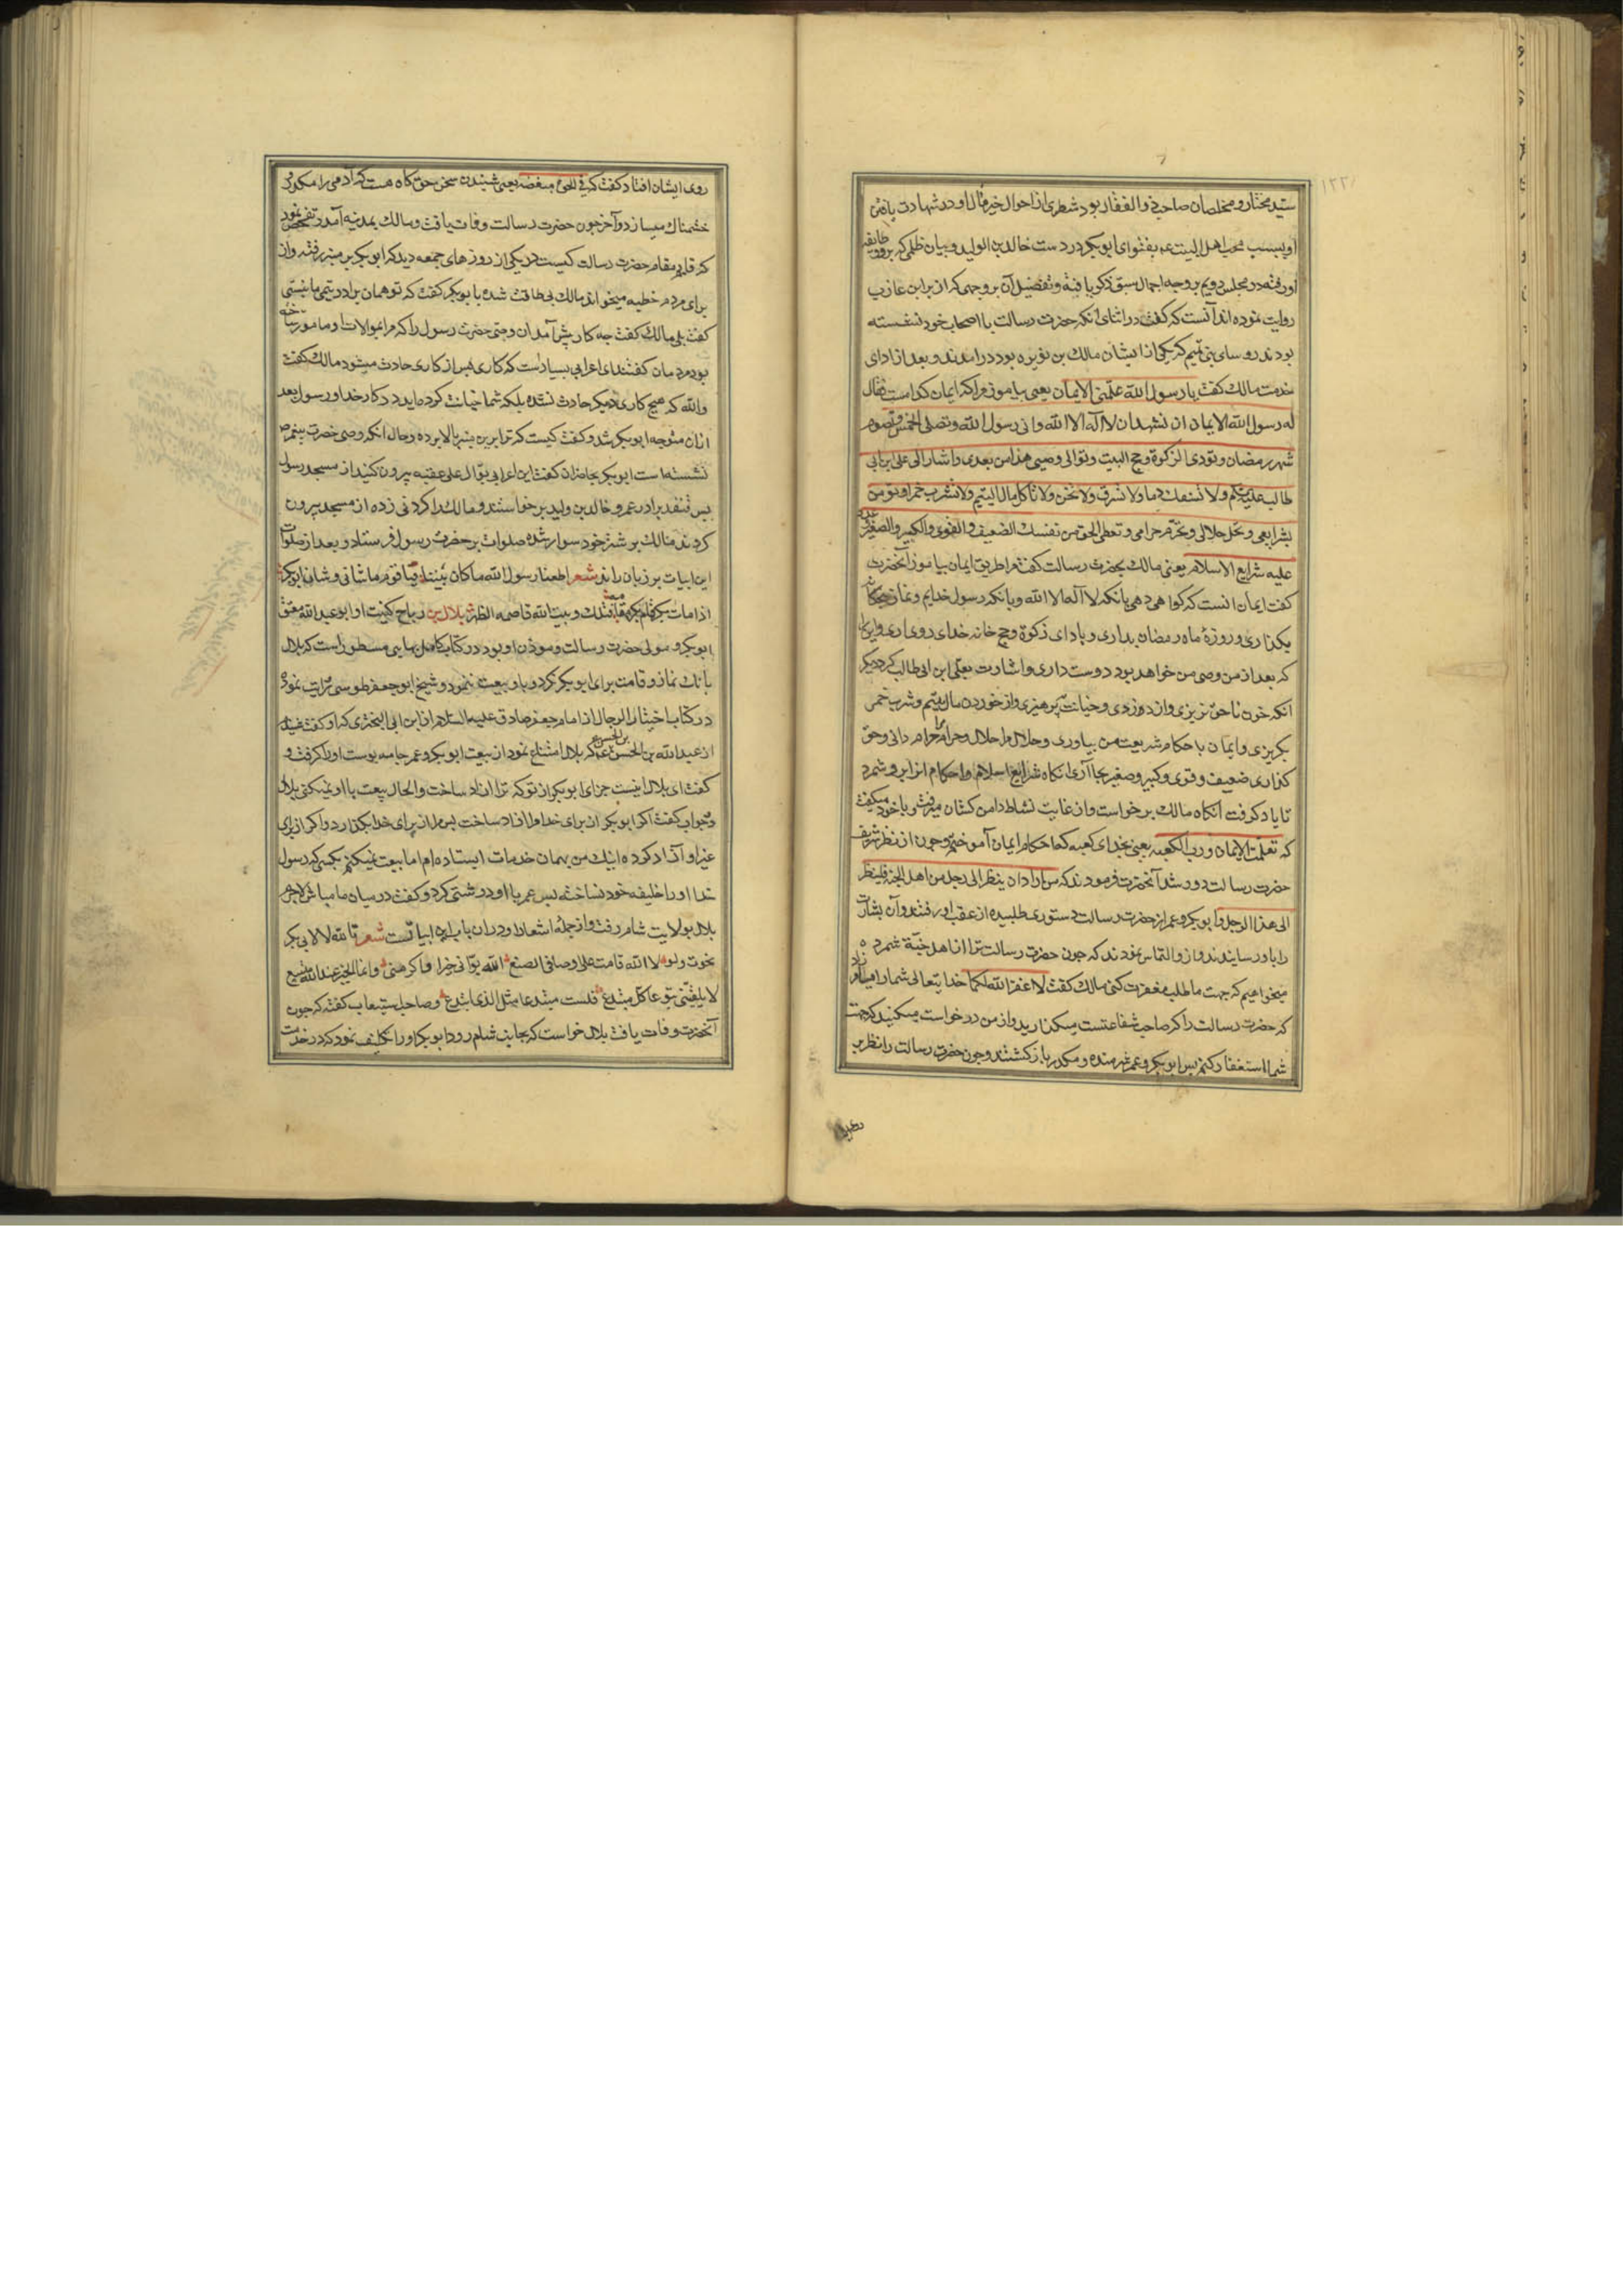 سید مختار و مخلصان صاحب ذو الفقار بود شطری از احوال خیر مآل او در شهادت یافتن
او بسبب محبت اهل البیت ع بفتوای ابوبکر در دست خالد بن الولید و بیان ظلمی که برو و طایفه
او رفته در مجلس دویم بر وجه اجمال سبق ذکر یافته و تفصیل آن بر وجهی که از براء بن عازب
روایت نموده اند آنست که گفت در اثنای انکه حضرت رسالت با اصحاب خود نشسته
بودند روسای بنی تمیم که یکی از ایشان مالک بن نویره بود در امدند و بعد از ادای
خدمت مالک گفت یا رسول الله علّمنی الایمان یعنی بیاموز مرا که ایمان کدامست فقال
له رسول الله الایمان ان تشهد ان لا اله الا الله و انی رسول الله و تصلی الخمس و تصوم
شهر رمضان و تودی الزکوة و حج البیت و توالی وصیی هذا من بعدی و اشار الی علی ابن ابی
طالب علیه و لا تسفک دما و لا تسرق و لا تخن و لا تاکل مال الیتیم و لا تشرب خمرا و تومن
بشرایعی و تحل حلالی و تحرم حرامی و تعطی الحق من نفسک الضعیف و القوی و الکبیر و الصغیر عد
علیه شرایع الاسلام یعنی مالک بحضرت رسالت گفت مرا طریق ایمان بیاموز آنحضرت
گفت ایمان انست که گواهی دهی بانکه لا اله الا الله و بانکه رسول خدایم و نماز پنجگانه
بگذاری و روزهٔ ماه رمضان بداری و بادای زکوة و حج خانه خدای روی اری و این
که بعد از من وصی من خواهد بود دوست داری و اشارت بعلی ابن ابی طالب کرد دیگر
انکه خون ناحق نریزی و از دوزدی و خیانت بپرهیزی و از خوردن مال یتیم و شرب خمر
بگریزی و ایمان باحکام شریعت من بیاوری و حلال مرا حلال و حرام مرا حرام دانی و حق
گذاری ضعیف و قوی و کبیر و صغیر بجا آری انکاه شرایع اسلام و احکام انرا برو شمرد
تا یاد گرفت انگاه مالک برخواست و از غایت نشاط دامن کشان میرفت و با خود میگفت
که تعلمت الایمان و رب الکعبه یعنی بخدای کعبه که احکام ایمان آموختم و چون از نظر شریف
حضرت رسالت دور شد آنحضرت فرمودند که من اراد ان ینظر الی رجل من اهل الجنة فلینظر
الی هذا الرجل و ابوبکر و عمر از حضرت رسالت دستوری طلبیده از عقب او رفتند و آن بشارت
را باو رسانیدند و ازو التماس نمودند که چون حضرت رسالت ترا از اهل جنّة شمرده
میخواهیم که جهت ما طلب مغفرت کنی مالک گفت لا غفر الله لکما خدایتعالی شما را میامرزاد
که حضرت رسالت را که صاحب شفاعتست میگذارید و از من درخواست میکنید که جهت
شما استغفار کنم پس ابوبکر و عمر شرمنده و مکدر بازگشتند و چون حضرت رسالت را نظر بر
روی ایشان افتاد گفت که فی الحق مبغضه یعنی شنیدن سخن حق گاه هست که آدمی را مکدر و
خشمناک میسازد و آخر چون حضرت رسالت وفات یافت و مالک بمدینه آمد و تفحص نمود
که قایم مقام حضرت رسالت کیست در یکی از روزهای جمعه دید که ابوبکر بر منبر رفته و از
برای مردم خطبه میخواند مالک بی طاقت شده با بوبکر گفت که تو همان برادر تیمی ما نیستی
گفت بلی مالک گفت چه کار پیش آمد ان وصی حضرت رسول را که مرا بموالات او مامور ساخته
بود مردمان گفتند ای اعرابی بسیارست که کاری پس از کاری حادث میشود مالک گفت
والله که هیچ کاری دیگر حادث نشده بلکه شما خیانت کرده اید در کار خدا و رسول بعد
ازان متوجه ابوبکر شد و گفت کیست که ترا برین منبر بالا برده و حال انکه وصی حضرت پیغمبر
نشسته است ابوبکر بحاضران گفت این اعرابی بوّال علی عقبیه بیرون کنید از مسجد رسول
پس قنفد برادر عمر و خالد بن ولید برخواستند و مالک را گردنی زده از مسجد بیرون
کردند مالک بر شتر خود سوار شده صلوات بر حضرت رسول فرستاد و بعد از صلوات
این ابیات بر زبان راند شعر اطعنا رسول الله ما کان بیننا فیا قوم ما شانی و شان ابی بکر
اذا مات بکر قام بکر مقامه فتلک و بیت الله قاصمه الظهر بلال بن رباح کنیت او ابو عبدالله معتق
ابوبکر و مولی حضرت رسالت و موذن او بود در کتاب کامل بهایی مسطور است که بلال
بانک نماز و قامت برای ابوبکر نکرد و باو بیعت ننمود و شیخ ابو جعفر طوسی روایت نموده
در کتاب اختیار الرجال از امام جعفر صادق علیه السلام از ابن ابی البختری که او گفت
از عبدالله بن الحسن بن الحسن ع که بلال امتناع نمود از بیعت ابوبکر و عمر جامه پوست او را گرفت و
گفت ای بلال اینست جزای ابوبکر از تو که ترا ازاد ساخت و الحال بیعت با او نمیکنی بلال
در جواب گفت اگر ابوبکر از برای خدا مرا ازاد ساخت پس مرا از برای خدا بگذارد و اگر از برای
غیر او آزاد کرده اینک من بهمان خدمات ایستاده ام اما بیعت نمیکنم بکسی که رسول
خدا او را خلیفه خود نساخته پس عمر با او درشتی کرد و گفت در میان ما مباش لاجرم
بلال بولایت شام رفت و از جملهٔ اشعار او دران باب این ابیاتست شعر تا لله لا لابی بکر
نجوت و لولا الله قامت علی اوصالی الضبع الله بوّانی خیرا و اکرمنی و انما الخیر عند الله متبع
لا یلفینی تبوعا کل مبتدع فلست مبتدعا مثل الذی ابتدع و صاحب استیعاب گفته که چون
آنحضرت وفات یافت بلال خواست که بجانب شام رود ابوبکر او را تکلیف نمود که در خدمت